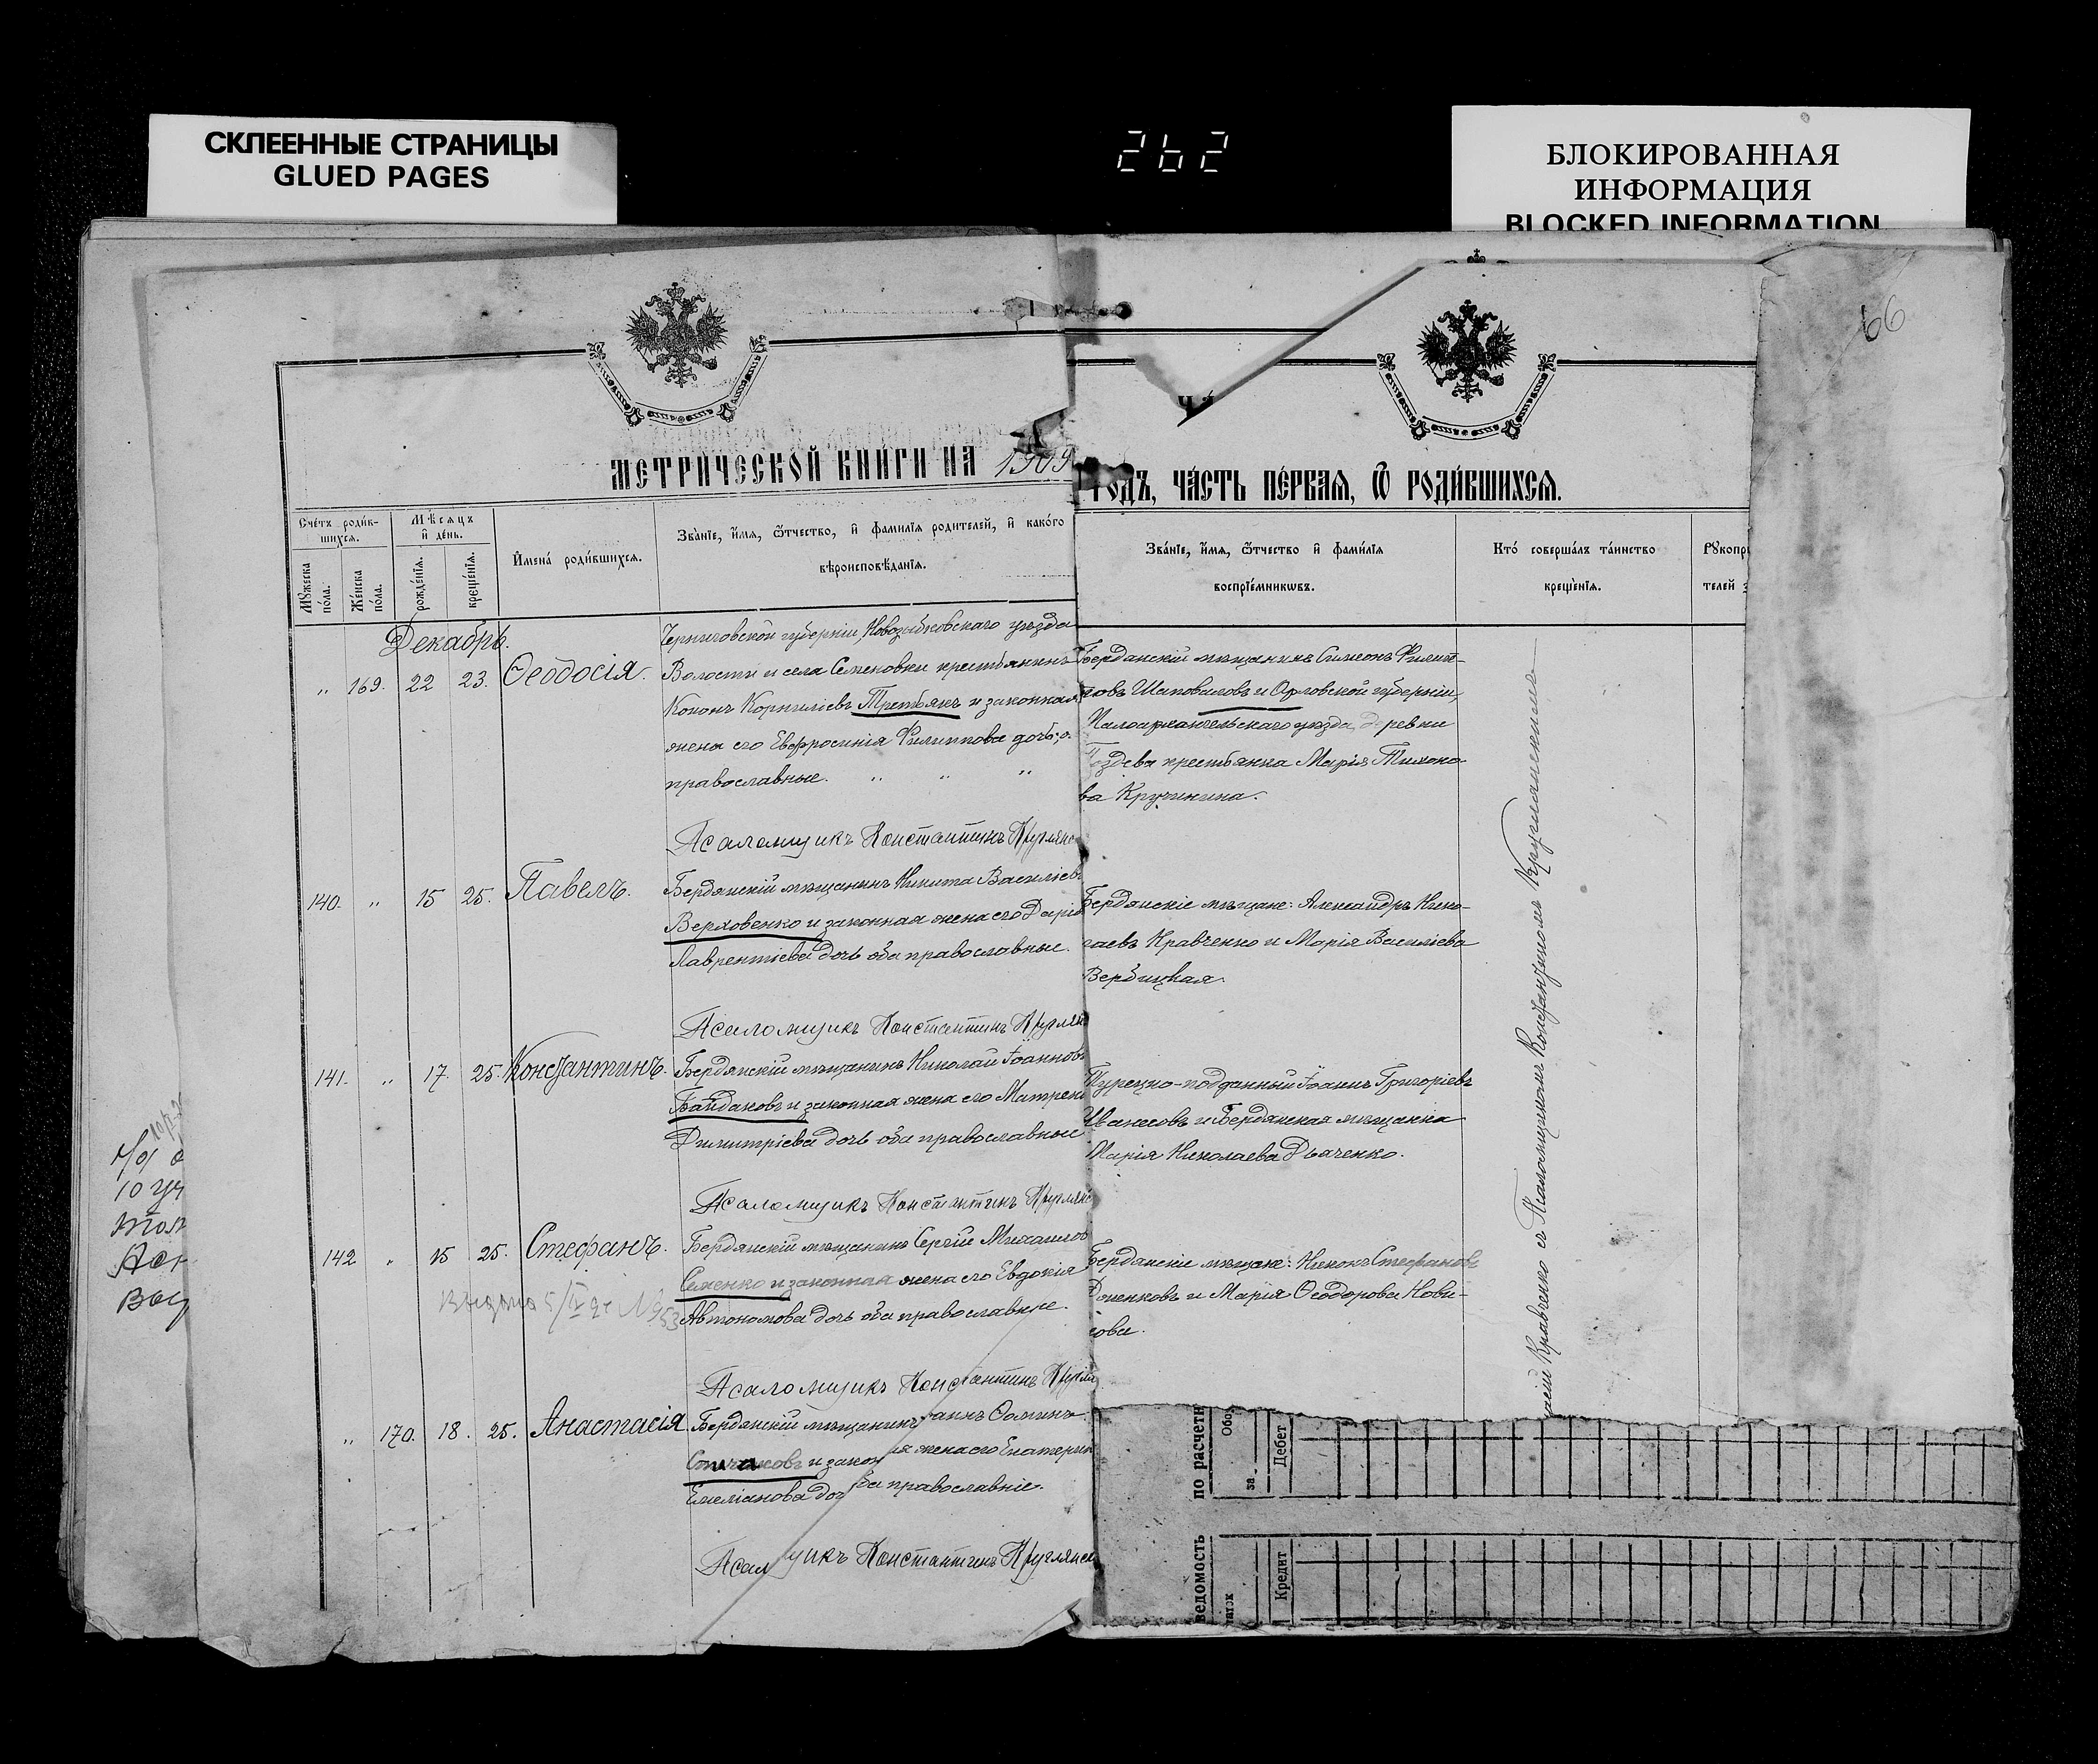 СКЛЕЕННЫЕ СТРАНИЦЫ
GLUED PAGES
262
БЛОКИРОВАННАЯ
ИНФОРМАЦИЯ
BLOCKED INFORMATION
66
МЕТРИЧЕСКОЙ КНИГИ НА 1909
ГОДЪ, ЧАСТЬ ПЕРВАЯ, Ѿ РОДИВШИХСЯ.
Счетъ родив-
шихся.
Мѣсяцъ
и день.
Мужеска
пола.
Женска
пола.
рожденія.
крещенія.
Имена родившихся.
Званіе, имя, ѿтчество, и фамилія родителей, и какого
вѣроисповѣданія.
Званіе, имя, ѿтчество и фамилія
воспріемниковъ.
Кто совершалъ таинство
крещенія.
Рукопри
телей
Декабрь.
" 169. 22 23. Ѳеодосія.
Черниговской губерніи, Новозыбковскаго уѣзда
Волости и села Семеновки крестьянинъ
Кононъ Корниліевъ Третьякъ и законная
жена его Евфросинія Филиппова дочь, о.
православные. " " "
Бердянскій мѣщанинъ Симеонъ Филип-
повъ Шаповаловъ и Орловской губерніи,
Малоархангельскаго уѣзда, деревни
крестьянка Марія Тихоно-
ва Кручинина.
Псаломщикъ Константинъ Круглянс
140. " 15 25. Павелъ.
Бердянскій мѣщанинъ Никита Василіев
Верховенко и законная жена его Дарія
Лаврентіева дочь оба православные.
Бердянскіе мѣщане: Александръ Нико-
лаевъ Кравченко и Марія Василіева
Вербицкая.
Псаломщикъ Константинъ Круглян
141. " 17. 25. Константинъ.
Бердянскій мѣщанинъ Николай Іоанновъ
Байдаковъ и законная жена его Матрена
Димитріева дочь оба православные
Турецко-подданный Іоаннъ Григоріевъ
и Бердянская мѣщанка
Марія Николаева Дьяченко.
Псаломщикъ Константинъ Круглянс
142 " 15 25. Стефанъ.
Бердянскій мѣщанинъ Сергій Михаилов
Семенко и законная жена его Евдокія
Автономова дочь оба православные.
Бердянскіе мѣщане: Никонъ Стефановъ
и Марія Ѳеодорова Нови-
кова.
Псаломщикъ Константинъ Кругля
" 170. 18. 25. Анастасія
Бердянскій мѣщанинъ аинъ Ѳоминъ
и закон ая жена его Екатерин
Емеліанова доч ба православніе.
Псалм щикъ Константинъ Круглянск
Кравченко съ Псаломщикомъ Константиномъ Круглянскимъ
10 уч
по расчетн
за
Обо
Дебет
ведомость
Кредит